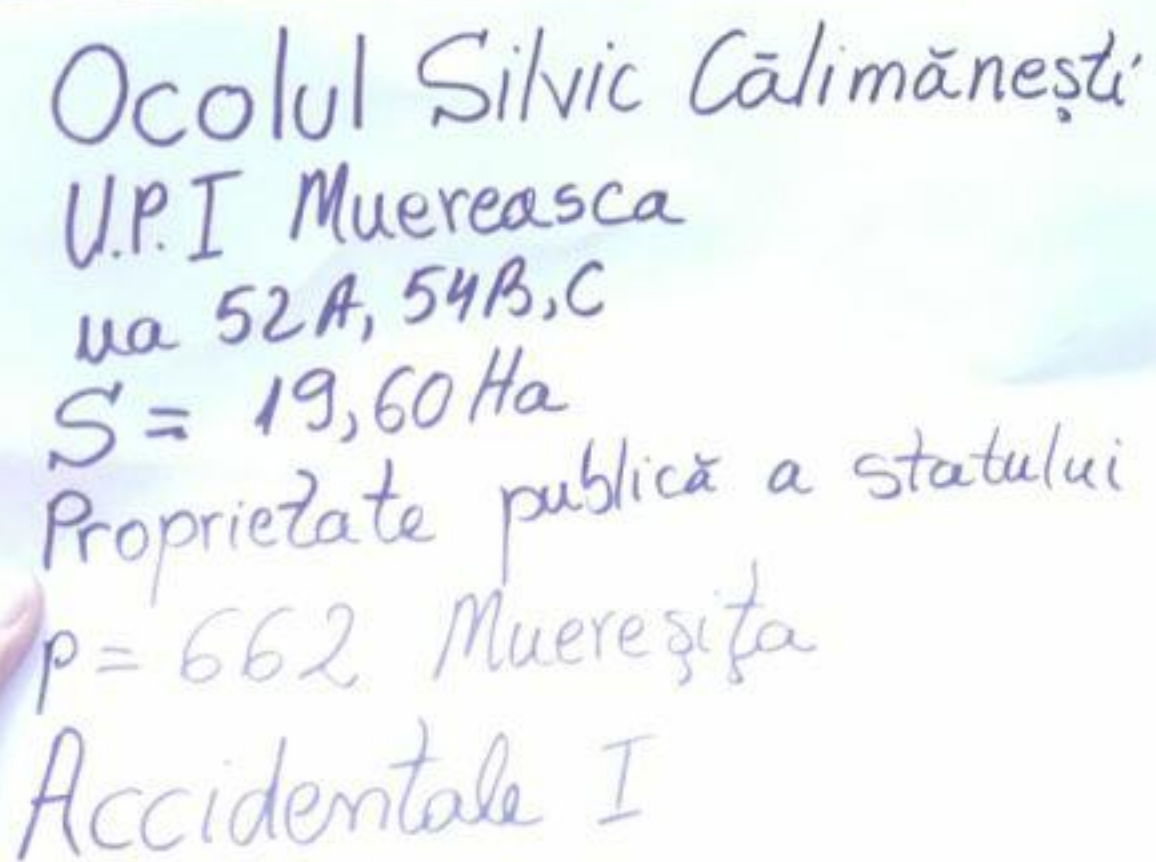 Ocolul Silvic Călimănești
U.P. I Muereasca
ua 52A, 54B, C
S = 19,60 Ha
Proprietate publică a statului
p = 662 Muereșița
Accidentale I